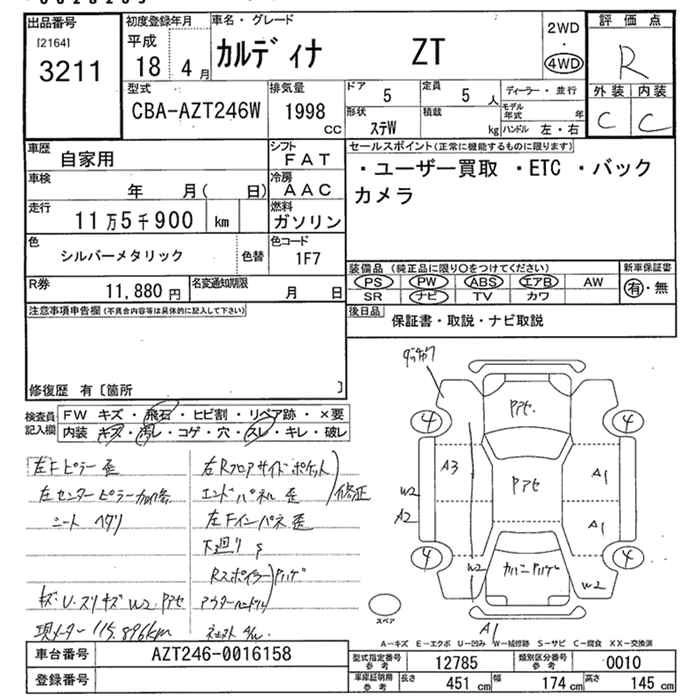 出品番号
[2164]
3211
初度登録年月
平成
18 4月
車名・グレード
カルディナ ZT
2WD
・
4WD
評価点
R
外装 内装
C C
型式
CBA-AZT246W
排気量
1998
CC
ドア
5
定員
5人
形状
ステW
積載
kg
ディーラー・並行
モデル年式 年
ハンドル 左・右
車歴
自家用
シフト
FAT
車検
年 月( 日)
冷房
AAC
走行
11万5千900 km
燃料
ガソリン
色
シルバーメタリック
色替
色コード
1F7
R券
11,880円
名変通知期限
月 日
セールスポイント(正常に機能するものに限ります)
・ユーザー買取 ・ETC ・バック
カメラ
装備品 (純正品に限り○をつけてください)
PS PW ABS エアB AW
SR ナビ TV カワ
新車保証書
有・無
後日品
保証書・取説・ナビ取説
注意事項申告欄(不具合内容等は具体的に記入して下さい)
修復歴 有〔箇所 〕
検査員記入欄
FW キズ・飛石・ヒビ割・リペア跡・×要
内装 キズ・汚レ・コゲ・穴・スレ・キレ・破レ
左Fピラー歪
左センターピラー
シート ヘタリ
キズ U・スリキズ W2 アセ
現メーター 115,896km
右Rフロアサイドポケット
エンドパネル 歪
修正
左Fインパネ歪
下廻り S
Rスポイラー ハゲ
アウターハンドル
4
4
4
4
アセ
アセ
A3
A1
A1
W2
A2
W2
W2
A1
スペア
A=キズ E=エクボ U=凹み W=補修跡 S=サビ C=腐食 XX=交換済
車台番号
AZT246-0016158
登録番号
型式指定番号 参考
12785
類別区分番号 参考
0010
車庫証明用 参考
長さ 451cm
幅 174cm
高さ 145cm